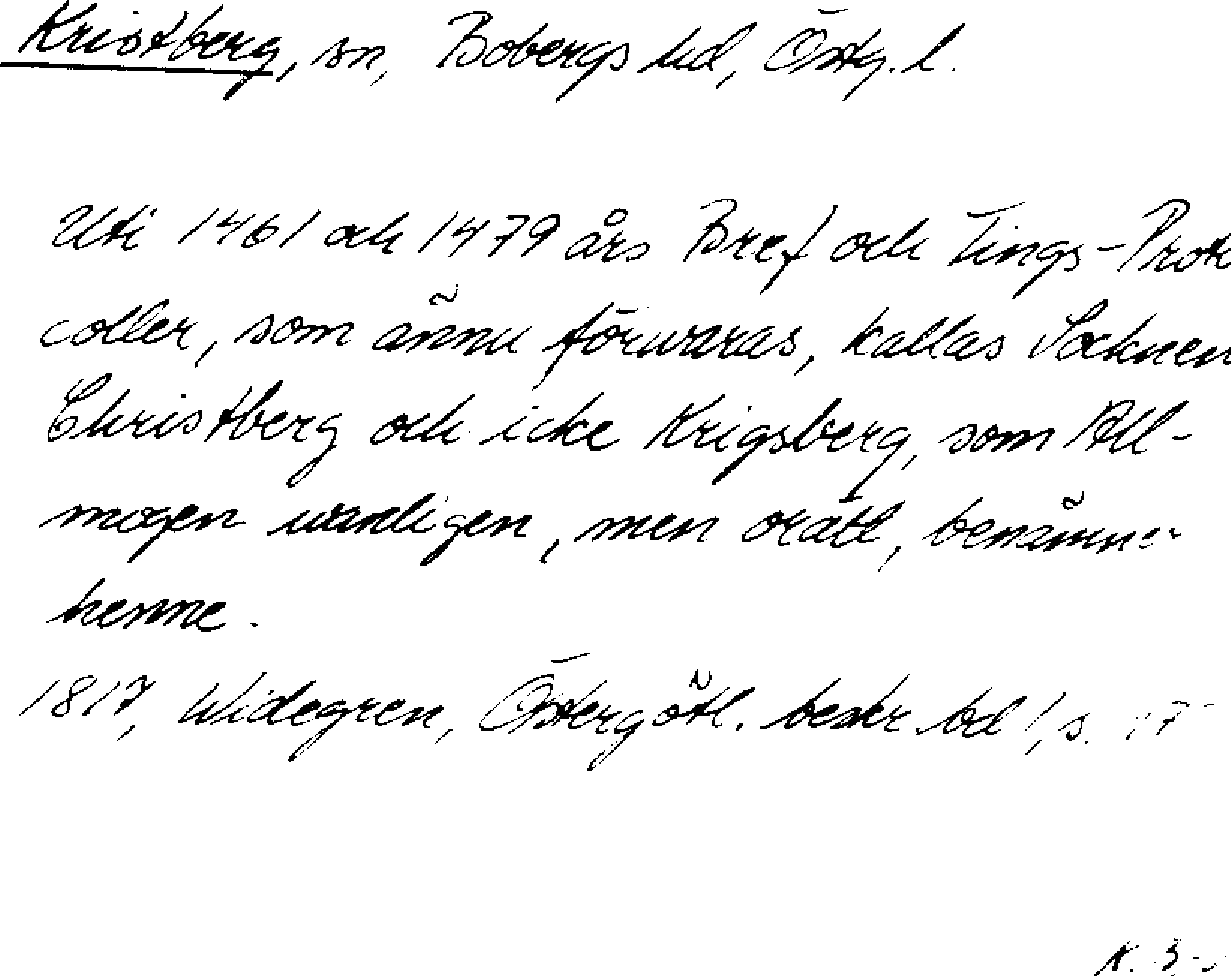 Kristberg, sn, Bobergs hd, Östg. l.
Uti 1461 och 1479 års Bref och Tings-Proto
coller, som ännu förwaras, kallas Socknen
Christberg och icke Krigsberg, som All-
mogen wanligen, men orätt, benämner
henne.
1817, Widegren, Östergötl. beskr bd 1, s.